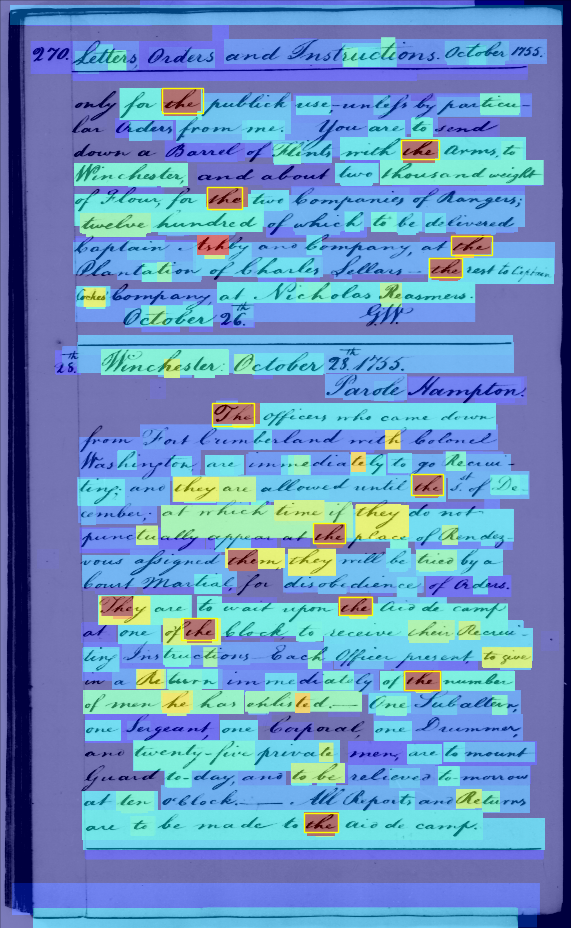 270. Letters, Orders and Instructions. October 1755.
only for the publick use, unless by particu-
lar Orders from me. You are to send
down a Barrel of Flints with the Arms, to
Winchester, and about two thousand weight
of Flour, for the two Companies of Rangers;
twelve hundred of which to be delivered
Captain Ashby and Company, at the
Plantation of Charles Sellars - the rest to Captain
Cockes Company at Nicholas Reasmers.
October 26.th G.W.
28.th Winchester: October 28.th 1755.
Parole Hampton.
The officers who came down
from Fort Cumberland with Colonel
Washington are immediately to go Recrui-
ting; and they are allowed until the 1st. of De-
cember; at which time if they do not
punctually appear at the place of Rendez-
vous assigned them, they will be tried by a
Court Martial, for disobedience of Orders.
They are to wait upon the Aid de camp
at one of the Clock to receive their Recrui-
ting Instructions. Each Officer present, to give
in a Return immediately of the number
of men he has enlisted. One Subaltern,
one Sergeant, one Corporal, one Drummer,
and twenty-five private men, are to mount
Guard to-day, and to be relieved to-morrow
at ten o'Clock. All Reports and Returns
are to be made to the aid de camp.